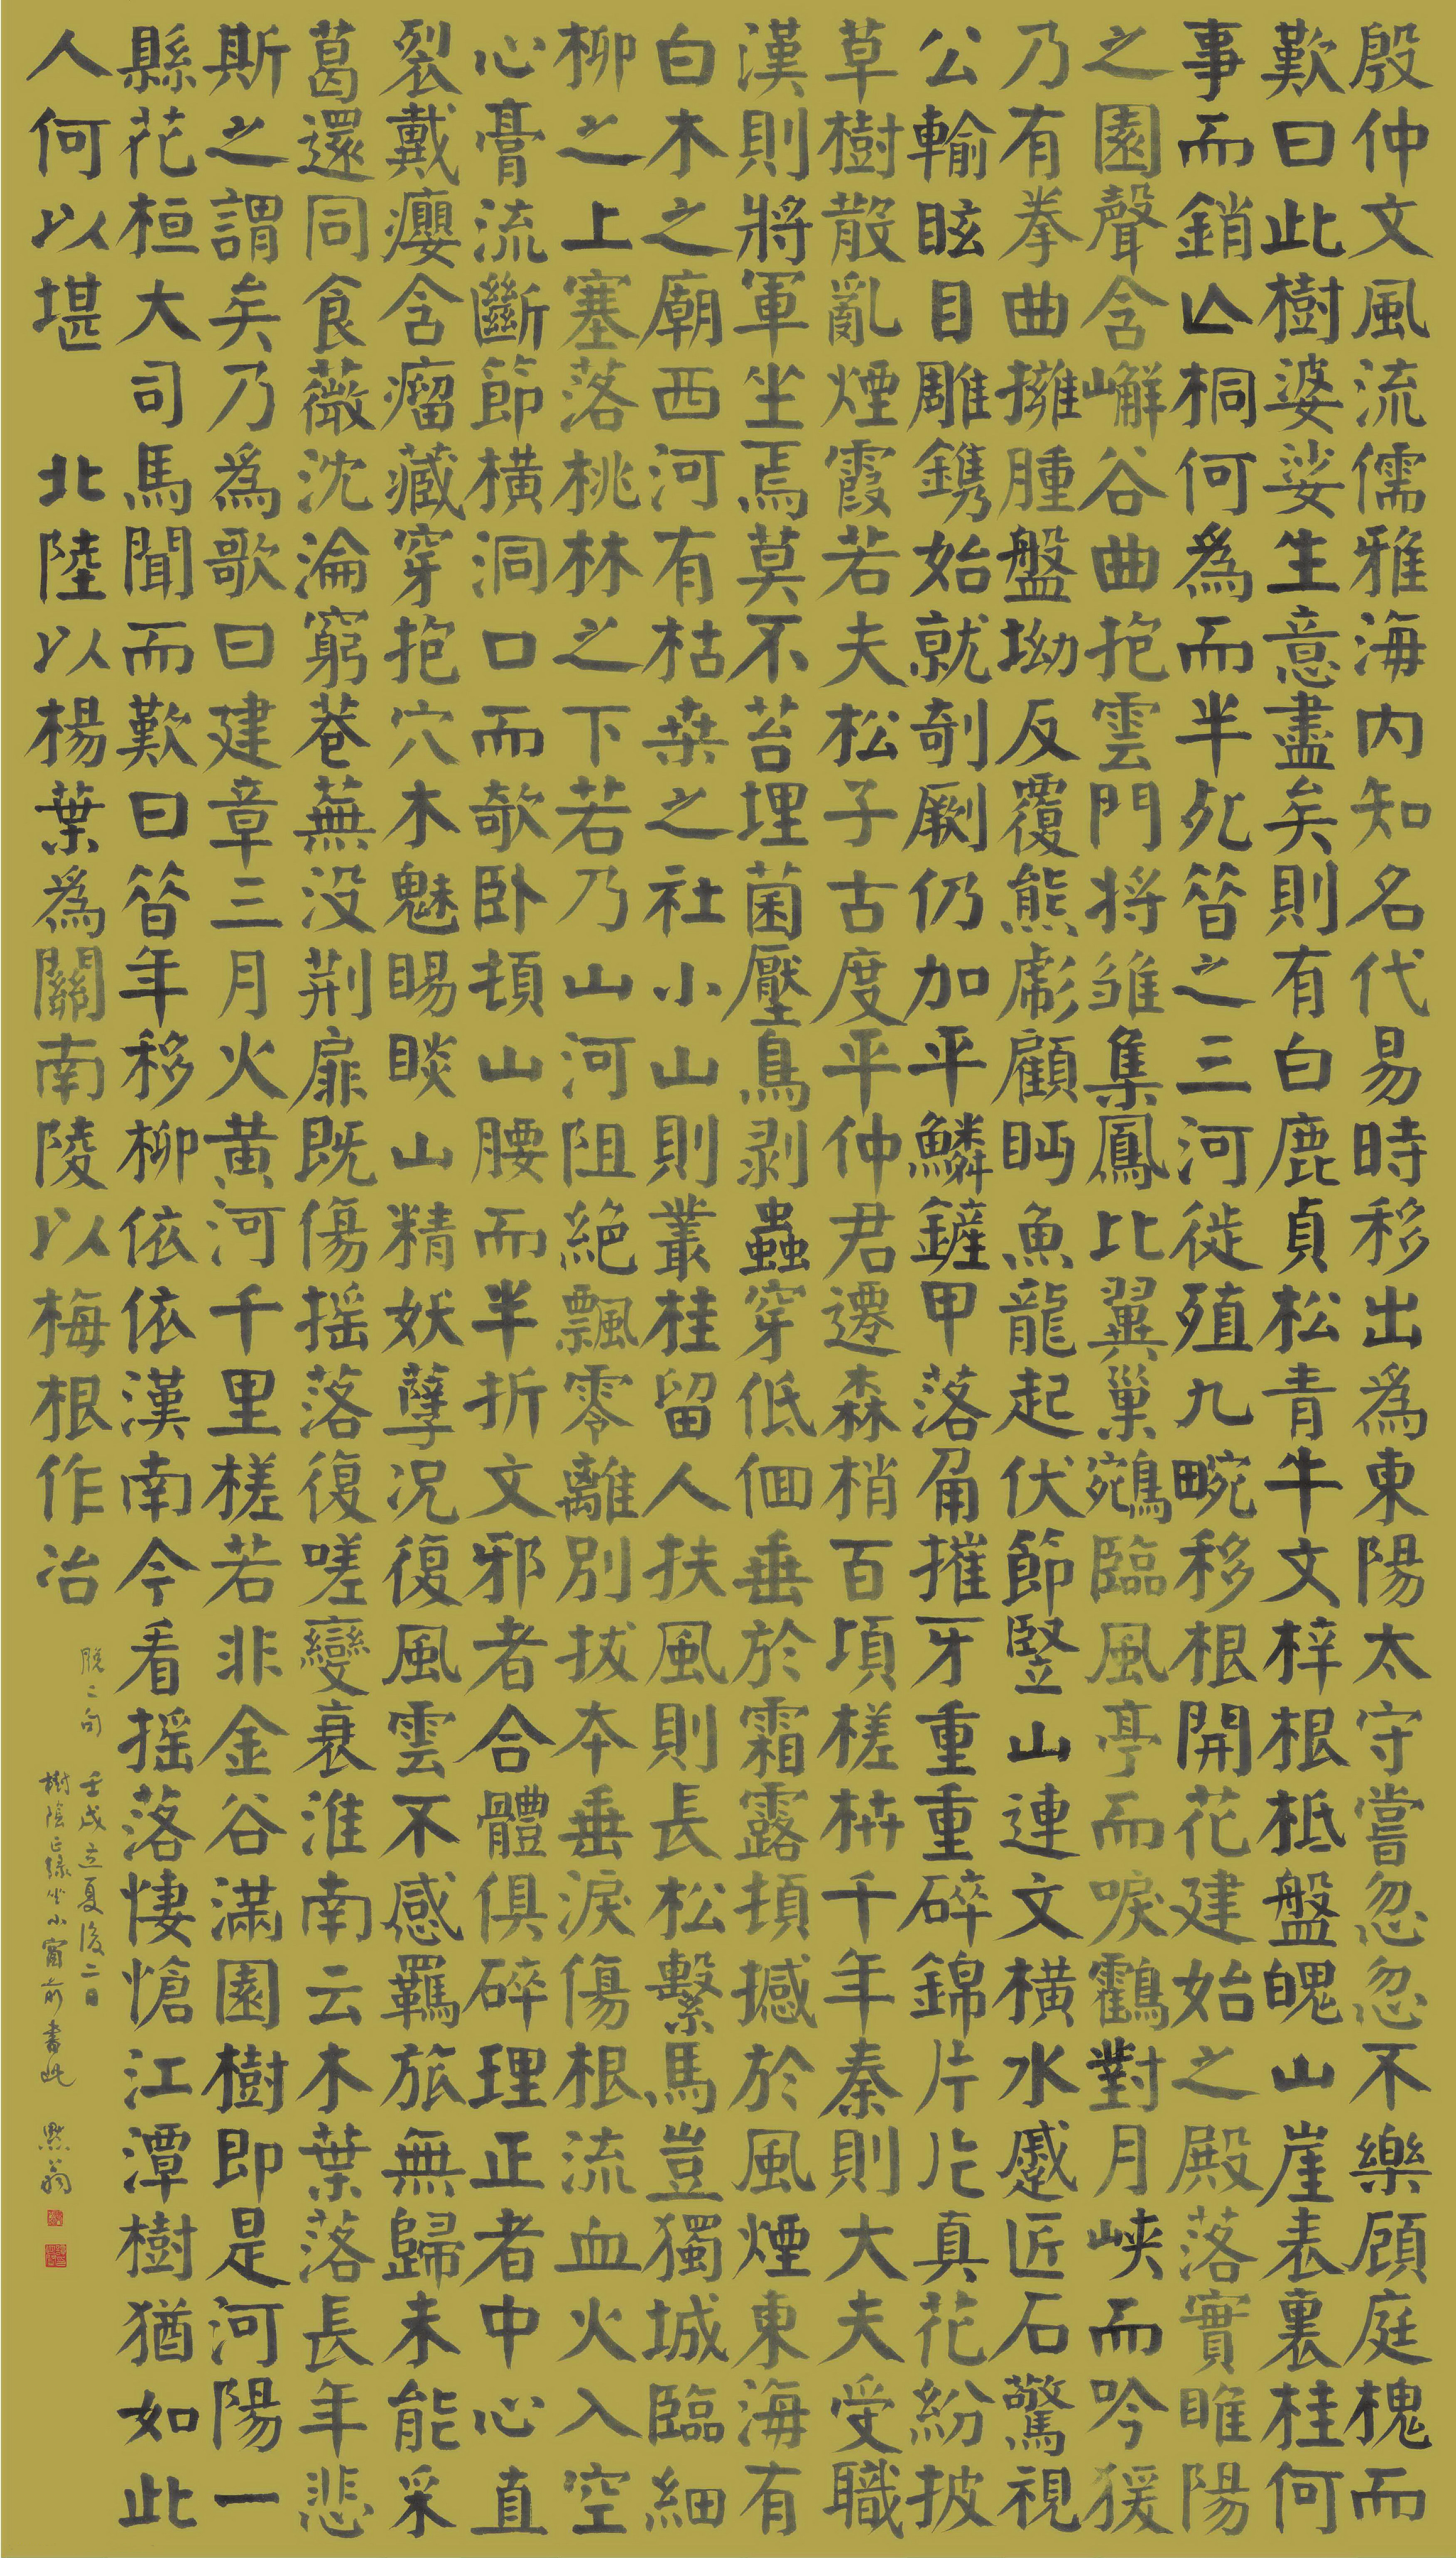 殷仲文風流儒雅海内知名代易時移出爲東陽太守嘗忽忽不樂顧庭槐而
歎曰此樹婆娑生意盡矣則有白鹿貞松青牛文梓根柢盤魄山崖表裏桂何
事而銷亾桐何爲而半死昝之三河徙殖九畹移根開花建始之殿落實睢陽
之園聲含嶰谷曲抱雲門將雛集鳳比翼巢鵷臨風亭而唳鶴對月峽而吟猨
乃有拳曲擁腫盤坳反覆熊彪顧眄魚龍起伏節竪山連文横水蹙匠石驚視
公輸眩目雕鐫始就剞劂仍加平鱗鏟甲落角摧牙重重碎錦片片真花紛披
草樹散亂煙霞若夫松子古度平仲君遷森梢百頃槎枿千年秦則大夫受職
漢則將軍坐焉莫不苔埋菌壓鳥剥蟲穿低佪垂於霜露頓撼於風煙東海有
白木之廟西河有枯桒之社小山則叢桂留人扶風則長松繫馬豈獨城臨細
柳之上塞落桃林之下若乃山河阻絶飄零離別拔本垂淚傷根流血火入空
心膏流斷節横洞口而欹卧頓山腰而半折文邪者合體俱碎理正者中心直
裂戴癭含瘤藏穿抱穴木魅賜睒山精妖孽况復風雲不感羈旅無歸未能采
葛還同食薇沈淪窮巷蕪没荆扉既傷摇落復嗟變衰淮南云木葉落長年悲
斯之謂矣乃爲歌曰建章三月火黃河千里槎若非金谷滿園樹即是河陽一
縣花桓大司馬聞而歎曰昝年移柳依依漢南今看摇落悽愴江潭樹猶如此
人何以堪 北陸以楊葉爲關南陵以梅根作冶
脱二句 壬戌立夏後二日
樹陰正緑坐小窗前書此 默翁